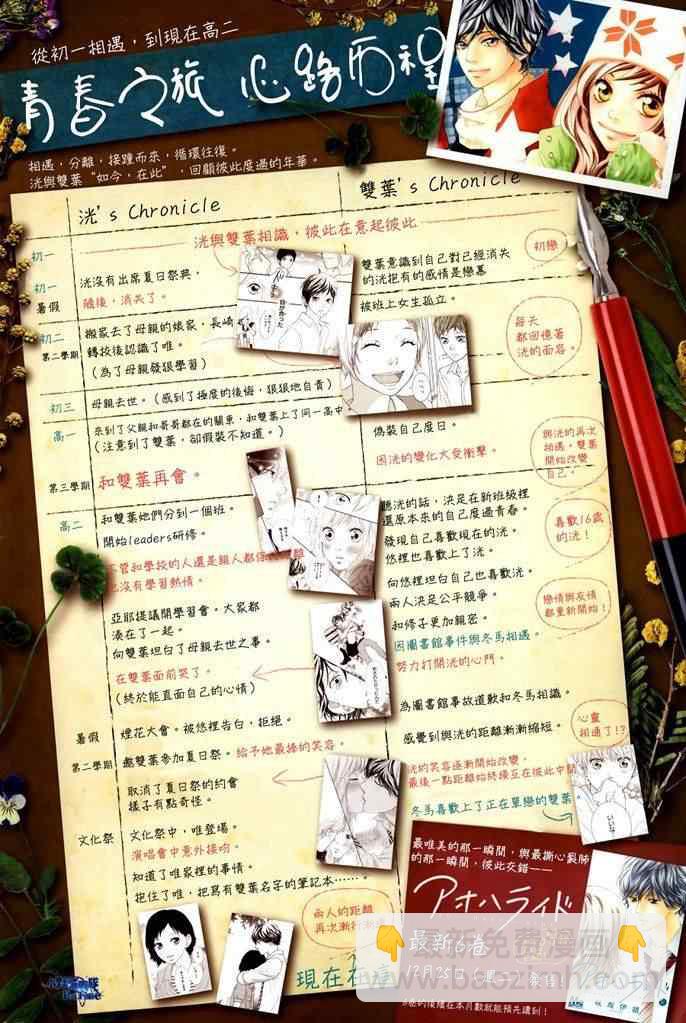 從初一相遇，到現在高二
青春之旅 心路历程
相遇，分離，接踵而來，循環往復。
洸與雙葉“如今，在此”，回顧彼此度過的年華。
洸's Chronicle
雙葉's Chronicle
初一
洸與雙葉相識，彼此在意起彼此
初一
暑假
洸沒有出席夏日祭典，
隨後，消失了。
雙葉意識到自己對已經消失
的洸抱有的感情是戀慕
初戀
被班上女生孤立。
初二
第二學期
搬家去了母親的娘家，長崎
轉校後認識了唯。
（為了母親發狠學習）
每天
都回憶著
洸的面容。
初三
母親去世。（感到了極度的後悔，狠狠地自責）
高一
來到了父親和哥哥都在的關東，和雙葉上了同一高中
（注意到了雙葉，卻假裝不知道。）
偽裝自己度日。
第三學期
和雙葉再會。
因洸的變化大受衝擊。
與洸的再次
相遇，雙葉
開始改變
自己。
高二
和雙葉她們分到一個班。
開始leaders研修。
聽洸的話，決定在新班級裡
還原本來的自己度過青春。
發現自己喜歡現在的洸。
悠裡也喜歡上了洸。
喜歡16歲
的洸！
不管和學校的人還是鎖人都
也沒有學習熱情。
向悠裡坦白自己也喜歡洸。
兩人決定公平競爭。
戀情與友情
都重新開始！
亞耶提議開學習會。大家都
湊在了一起。
向雙葉坦白了母親去世之事。
和修子更加親密。
因圖書館事件與冬馬相遇。
在雙葉面前哭了。
（終於能直面自己的心情）
努力打開洸的心門。
暑假
煙花大會。被悠裡告白，拒絕。
為圖書館事故道歉和冬馬相識。
感覺到與洸的距離漸漸縮短。
心靈
相通了!?
第二學期
邀雙葉參加夏日祭。給予她最棒的笑容。
取消了夏日祭的約會
樣子有點奇怪。
洸的笑容逐漸開始改變。
最後一點距離始終橫亙在彼此中間
冬馬喜歡上了正在單戀的雙葉。
文化祭
文化祭中，唯登場。
演唱會中意外接吻。
知道了唯家裡的事情。
抱住了唯，把寫有雙葉名字的筆記本……。
兩人的距離
再次漸行漸
現在在這
最唯美的那一瞬間，與最撕心裂肺
的那一瞬間，彼此交錯——
アオハライド
最新6卷
12月25日